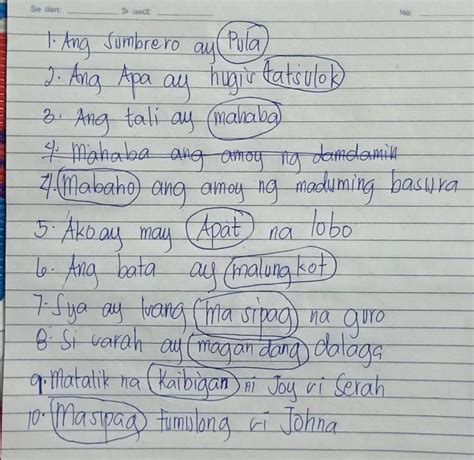 No:
1. Ang Sumbrero ay Pula
2. Ang Apa ay hugis tatsulok
3. Ang tali ay mahaba
4. Mahaba ang amoy ng damdamin
4. Mabaho ang amoy ng maduming basura
5. Ako ay may Apat na lobo
6. Ang bata ay malungkot
7. Sya ay isang masipag na guro
8. Si sarah ay magandang dalaga
9. Matalik na Kaibigan ni Joy si Serah
10. Masipag tumulong si Johna